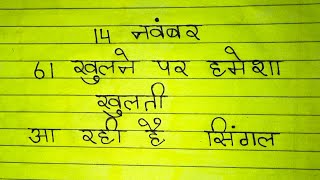 14 नवंबर
61 खुलने पर हमेशा
खुलती
आ रही है सिंगल